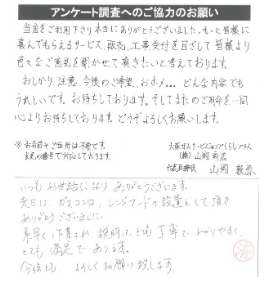 アンケート調査へのご協力のお願い
当店をご利用下さりまことにありがとうございました。もっと皆様に
喜んでもらえるサービス、販売、工事受付を目ざして皆様より
色々なご意見を聞かせて頂きたいと考えております。
おしかり、注意、今後のご希望、おホメ...どんな内容でも
うれしいです。お待ちしております。そしてまたのご用命を一同
心よりお待ちしております。どうぞよろしくお願いします。
※お名前やご住所は不要です。
(株)山岡
山岡
いつもお世話になりありがとうございます。
先日は、ガスコンロ、レンジフードの設置をして頂き
ありがとうございました。
素早く作業され、説明なども丁寧でわかりやすく、
とても満足であります。
今後もよろしくお願い致します。